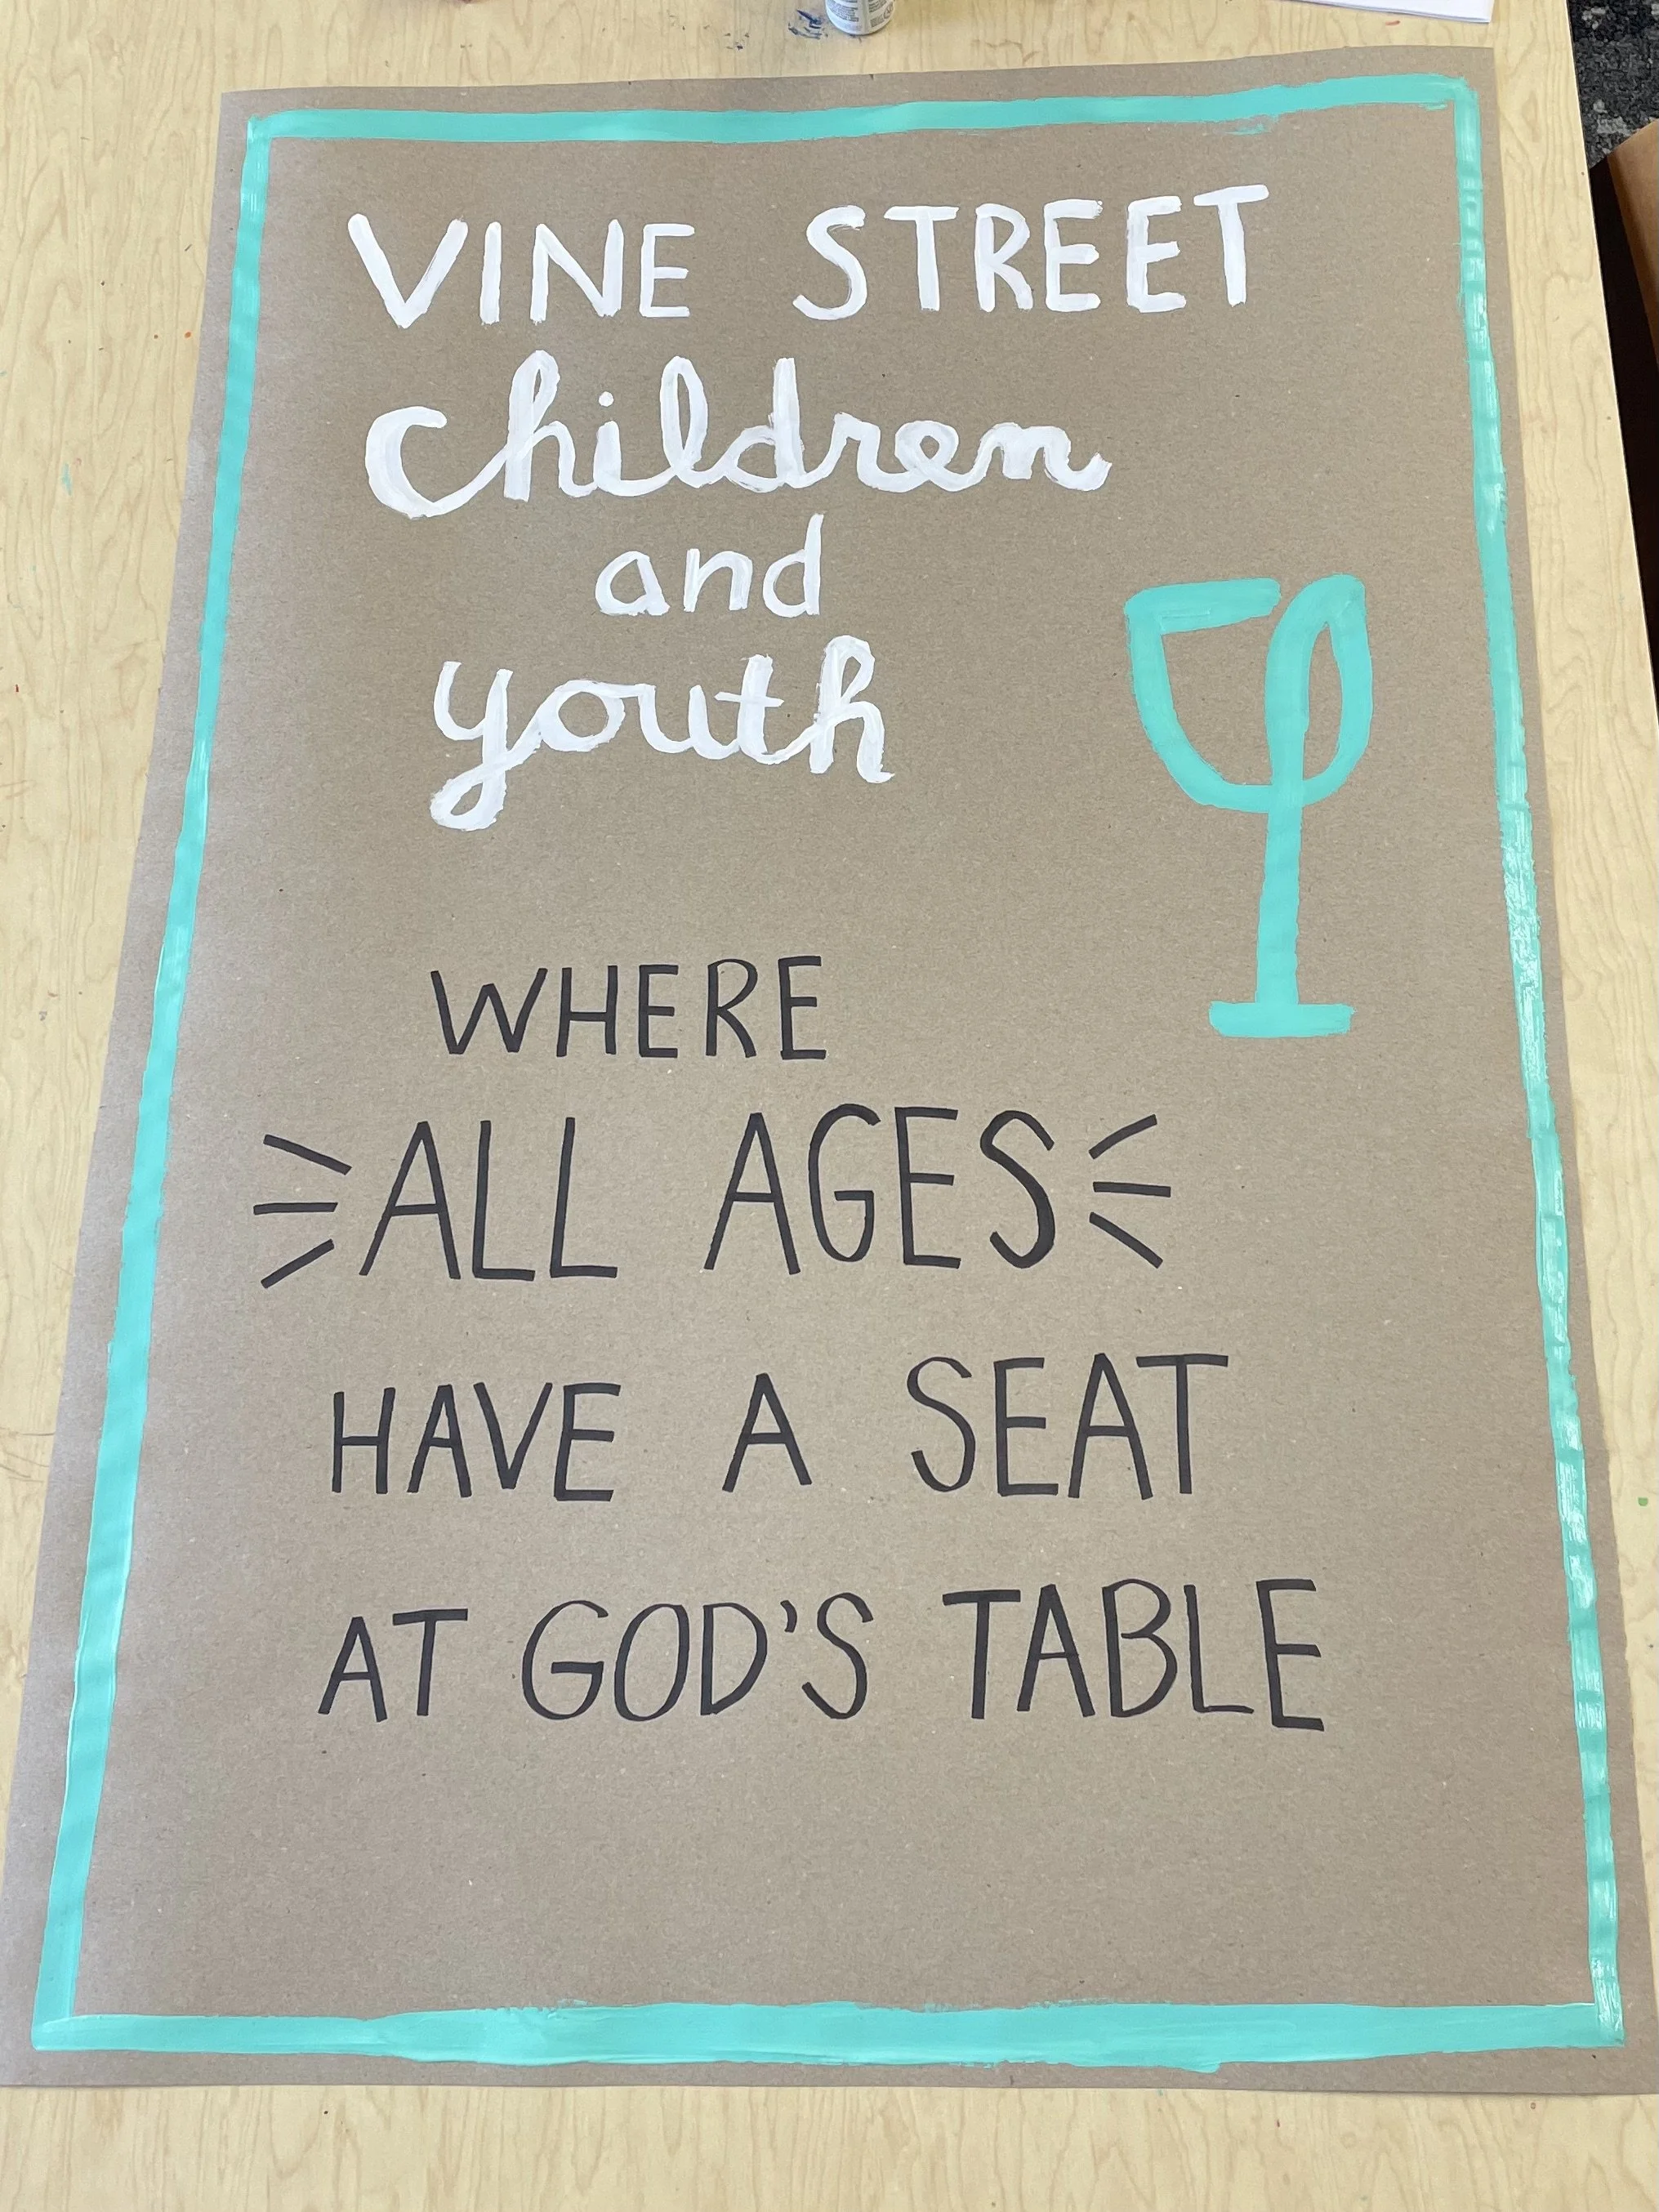 VINE STREET
Children
and
youth
WHERE
ALL AGES
HAVE A SEAT
AT GOD'S TABLE